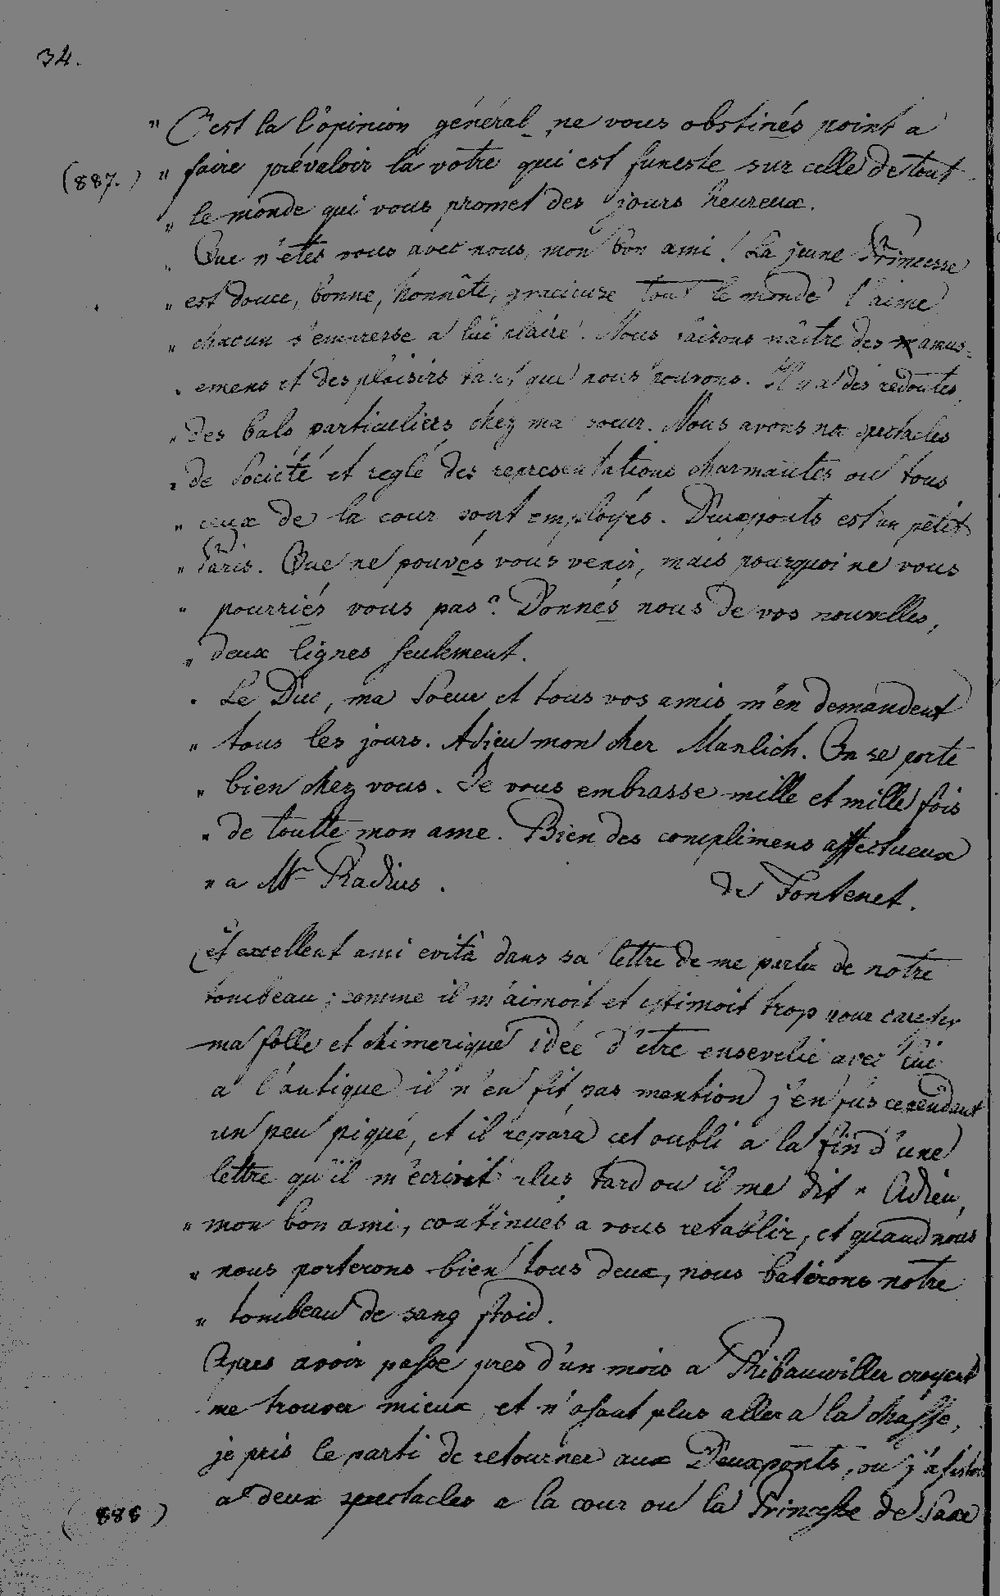 34.
" C'est la l'opinion général, ne vous obstinés point a
(887.) " faire prévaloir la vôtre qui est funeste sur celle de tout
" le monde qui vous promet des jours heureux.
" Que n'êtes vous avec nous, mon bon ami! La jeune Princesse
" est douce, bonne, honnête, gracieuse tout le monde l'aime
" chacun s'empresse a lui plaire. Nous faisons naître des amus-
" emens et des plaisirs tant que nous pouvons. Il y a des redoutes,
" des bals particuliers chez ma soeur. Nous avons nos spectacles
" de Société et reglé des representations charmantes ou tous
" ceux de la cour sont employés. Deuxponts est un petit
" Paris. Que ne pouvés vous venir, mais pourquoi ne vous
" pourriés vous pas? Donnés nous de vos nouvelles,
" deux lignes seulement.
" Le Duc, ma Soeur et tous vos amis m'en demandent
" tous les jours. Adieu mon cher Manlich. On se porte
" bien chez vous. Je vous embrasse mille et mille fois
" de toutte mon ame. Bien des complimens affectueux
" a Mr Radius. de Fontenet.
Cet excellent ami evita dans sa lettre de me parler de notre
tombeau; comme il m'aimoit et estimoit trop pour caresser
ma folle et chimerique idée d'etre ensevelie avec lui
a l'antique il n'en fit pas mention j'en fus cependant
un peu piqué, et il répara cet oubli a la fin d'une
lettre qu'il m'ecrivit plus tard ou il me dit " Adieu,
" mon bon ami, continués a vous retablir, et quand nous
" nous porterons bien tous deux, nous batirons notre
" tombeau de sang froid.
Apres avoir passé pres d'un mois a Ribauwiller croyant
me trouver mieux et n'osant plus aller a la chasse,
je pris le parti de retourner aux Deuxponts, ou j'assistai
(888) a deux spectacles a la cour ou la Princesse de Saxe